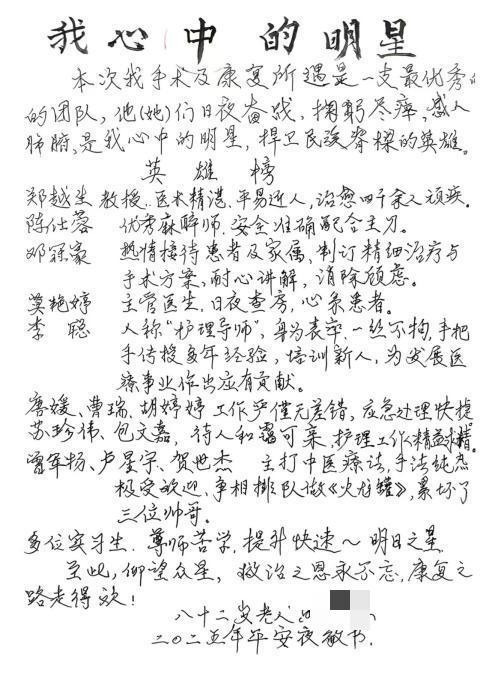 我心中的明星
本次我手术及康复所遇是一支最优秀的
的团队，他(她)们日夜奋战，掬躬尽瘁，感人
肺腑，是我心中的明星，捍卫民族脊樑的英雄。
英雄榜
郑越生 教授．医术精湛．平易近人，治愈四千余人顽疾。
陈仕蓉 优秀麻醉师．安全准确配合主刀。
邓冠豪 热情接待患者及家属，制订精细治疗与
手术方案，耐心讲解，消除顾虑。
莫艳婷 主管医生，日夜查房，心系患者。
李聪 人称"护理导师"，身为表率．一丝不拘，手把
手传授多年经验，培训新人，为发展医
療事业作出应有贡献。
唐媛、曹瑞、胡婷婷 工作严僅无差错，应急处理快捷
苏珍伟、包文嘉，待人和霭可亲，护理工作精益求精。
曾年扬、卢星宇、贺世杰 主打中医療法，手法纯熟
极受欢迎．争相排队做《火龙罐》，累坏了
三位帅哥。
多位实习生．尊师苦学，提升快速～明日之星
至此，仰望众星，救治之恩永不忘，康复之
路走得欢！
八十二岁老人
二〇二五年平安夜敬书．